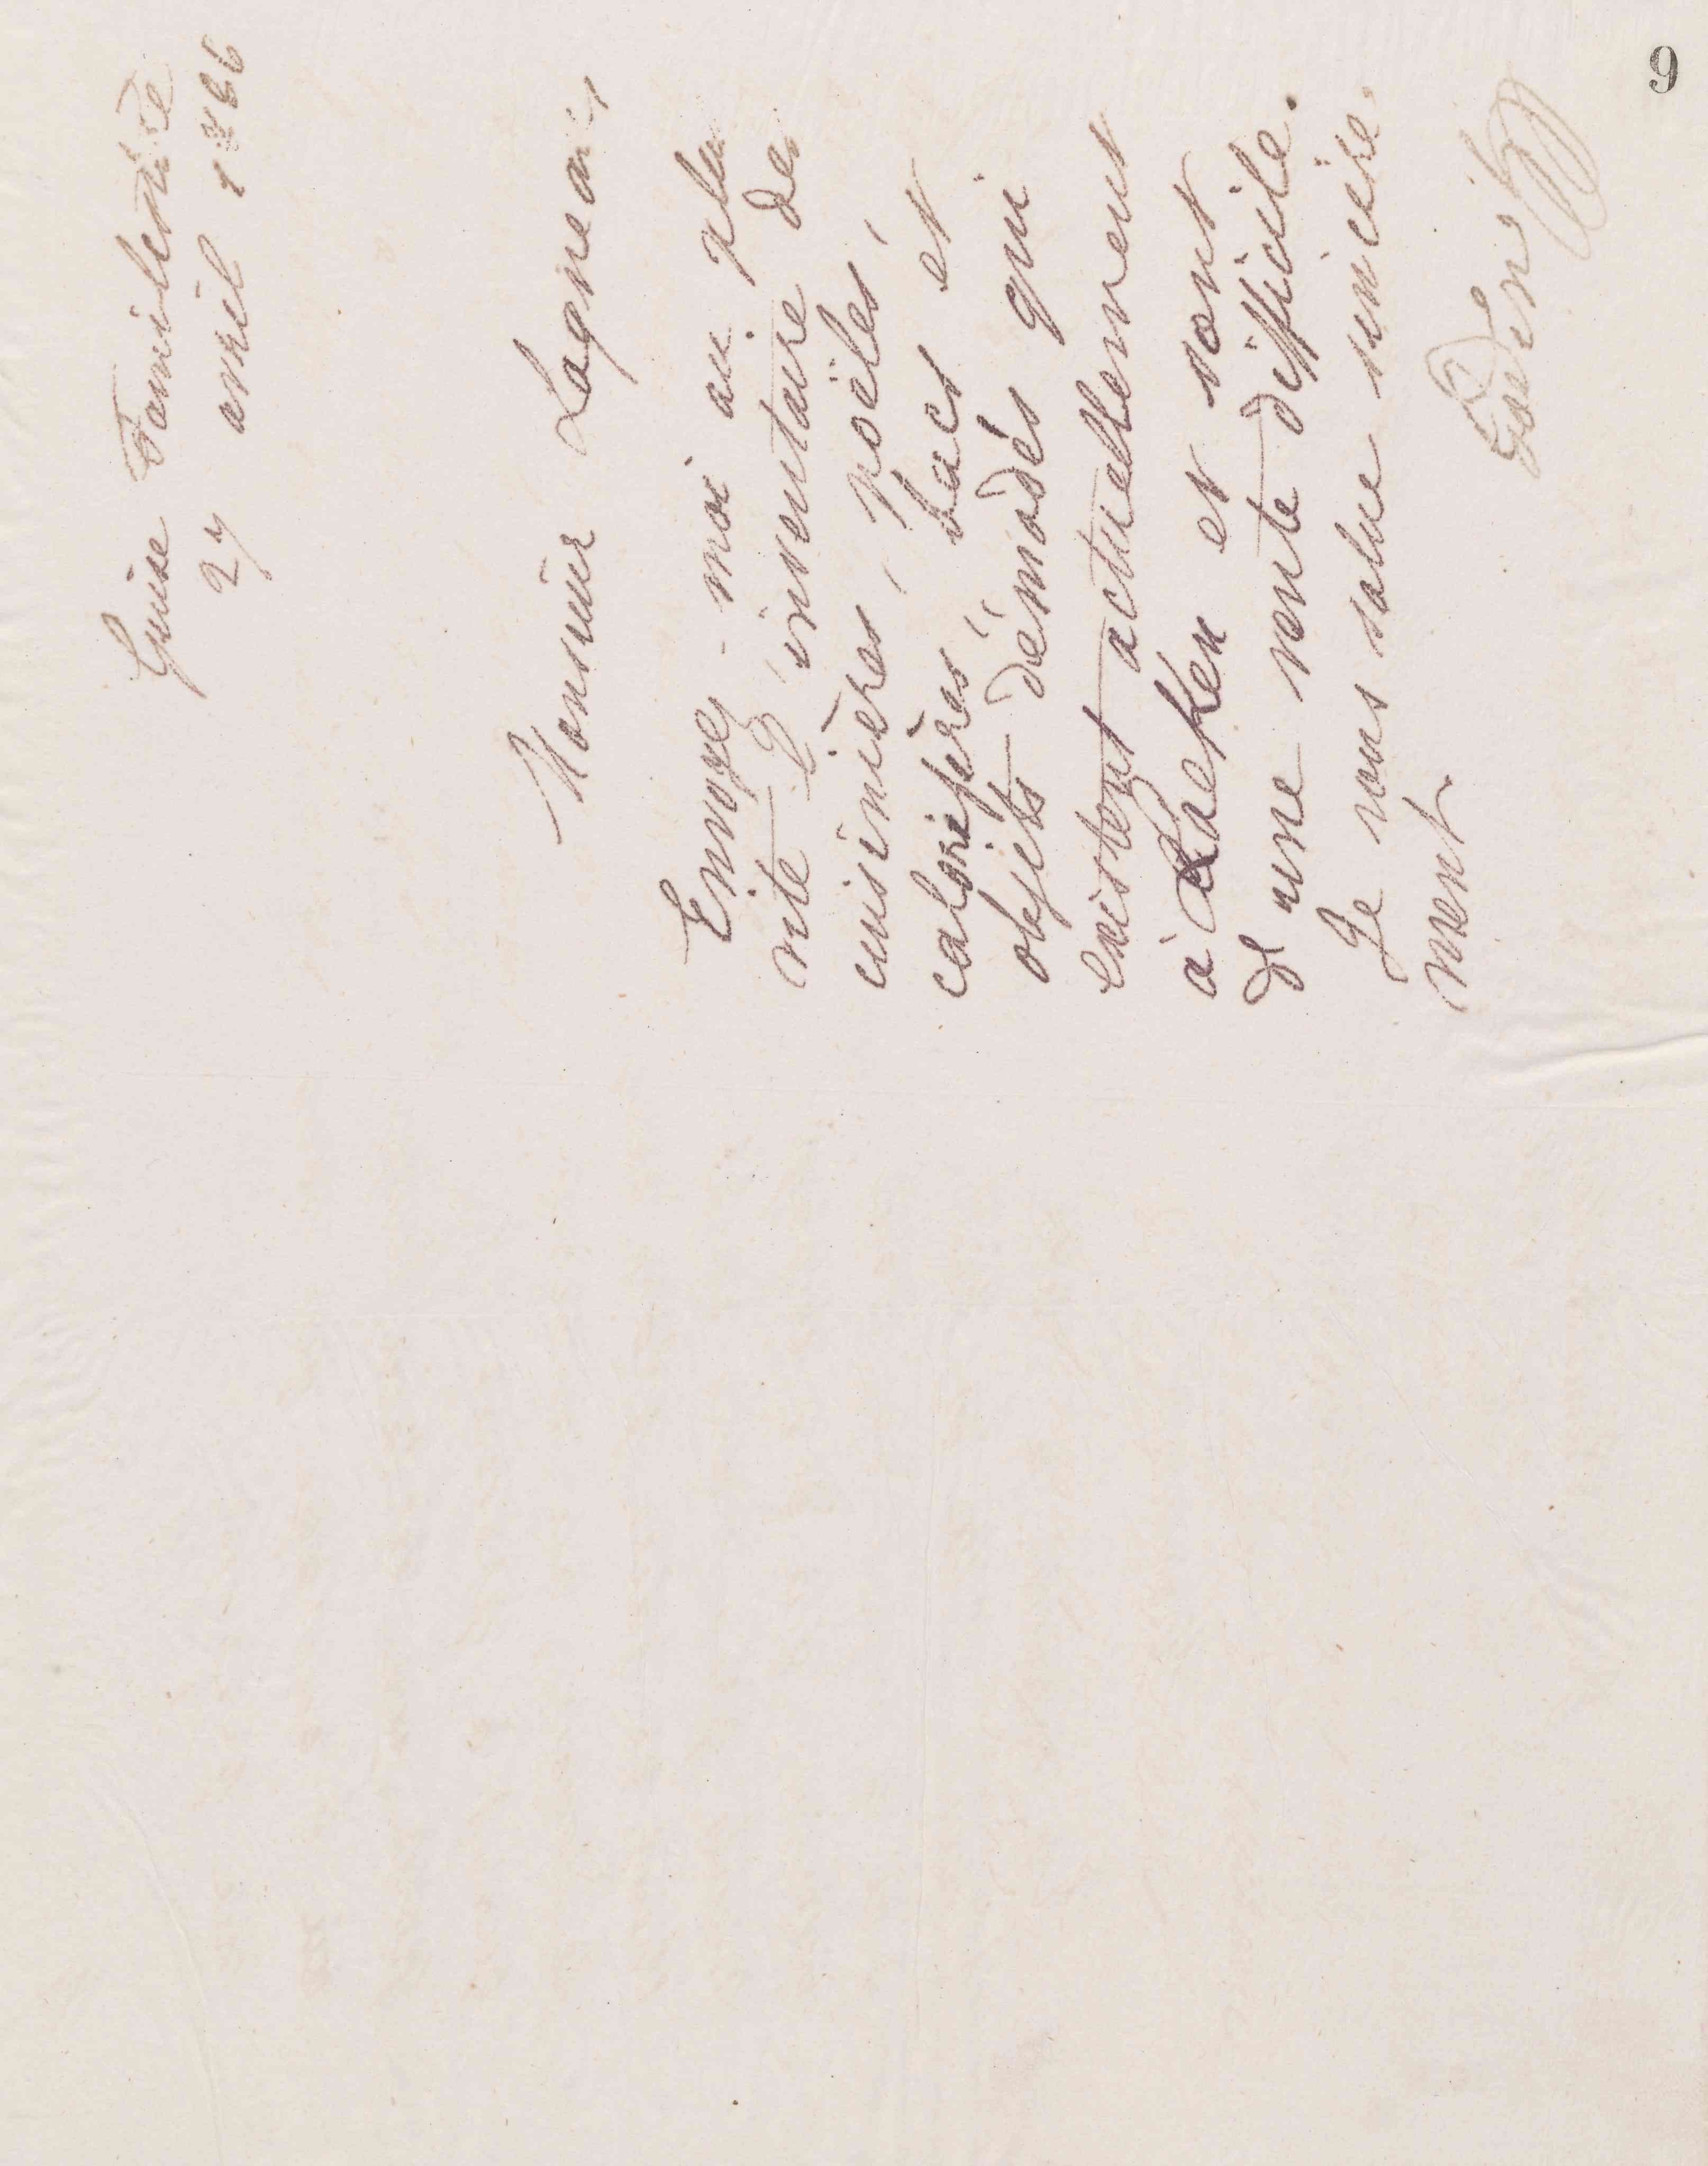 9
Guise Familistère
27 avril 1866
Monsieur Lagneau,
Envoyez-moi au plus
vite l'inventaire des
cuisinières, poëles,
calorifères, bacs et
objets démodés qui
existent actuellement
à Laeken et sont
d'une vente difficile.
Je vous salue sincère-
ment
Godin